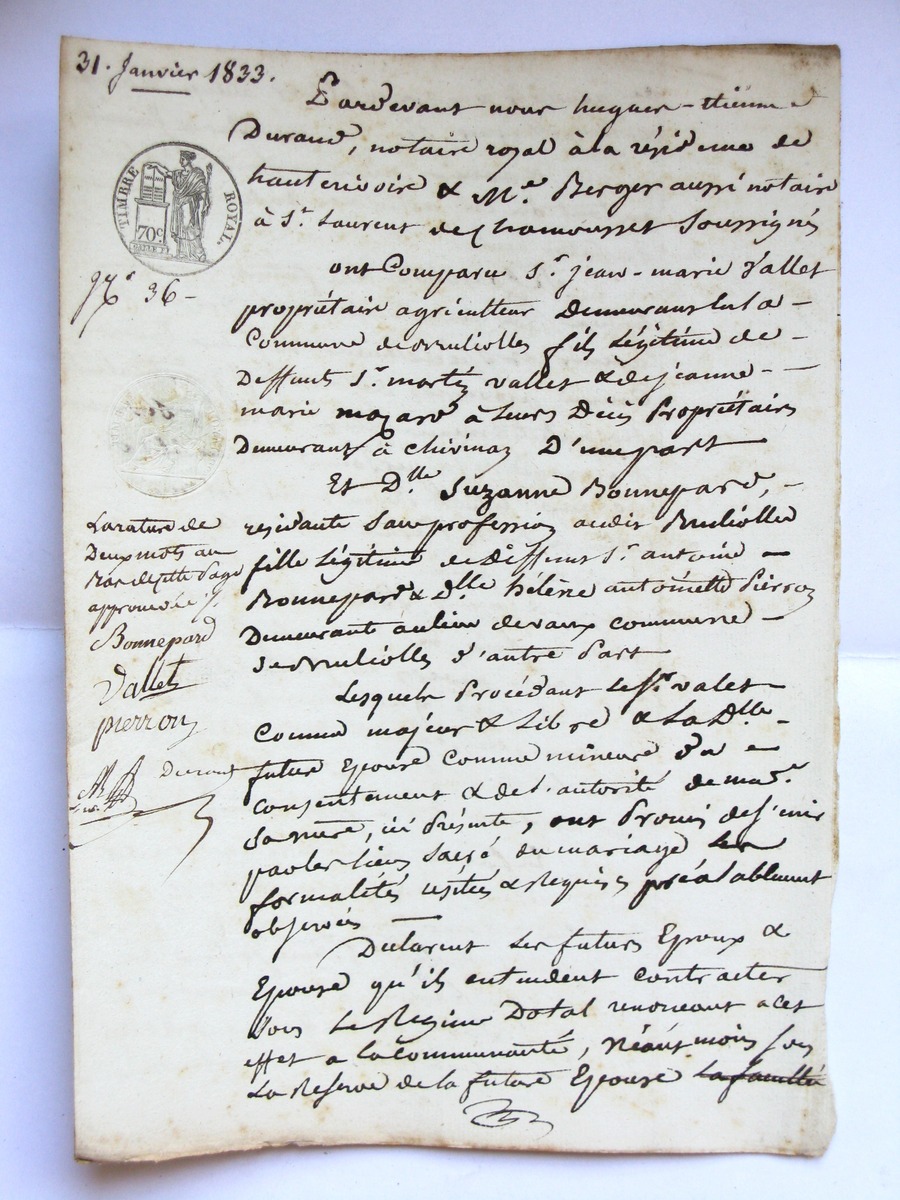 31. Janvier 1833.
TIMBRE ROYAL
70c.
36 -
Pardevant nous hugues - étienne
Durand, notaire royal à la résidence de
hauterivoire & Me. Berger aussi notaire
à St. Laurent de chamousset soussignés
ont Comparu Sr. jean - marie Vallet
propriétaire agriculteur Demeurant en la -
Commune de Brulliolles fils Légitime de -
Deffunts Sr. martin vallet & de jeanne -
marie mazard à leurs Décès Propriétaires
Demeurant à chivinay D'une part
Et Dlle Suzanne Bonnepard, -
residante Sans profession audit Brulliolles
fille Légitime de Deffunt Sr. antoine -
Bonnepard & Dlle hélène antoinette Pierron
Demeurante au lieu devaux commune -
de Brulliolles d'autre Part
Lesquels Procédant Le Sr. valet -
Comme majeur & Libre & La Dlle -
future Epouse Comme mineure du -
consentement & de l'autorité de
Sa mère, ici Présente, ont Promis de s'unir
par les liens Sacré du mariage Les
formalités usitées & Requises préalablement
observées
Déclarent Les futurs Epoux &
Epouse qu'ils entendent contracter
sous Le Regime Dotal renonceant a cet
effet a la Communauté, Néantmoins sous
La Reserve de la future Epouse La faculté
La rature de
Deux mots au
Bas de cette Page
approuvée
Bonnepard
Vallet
pierron
Durand